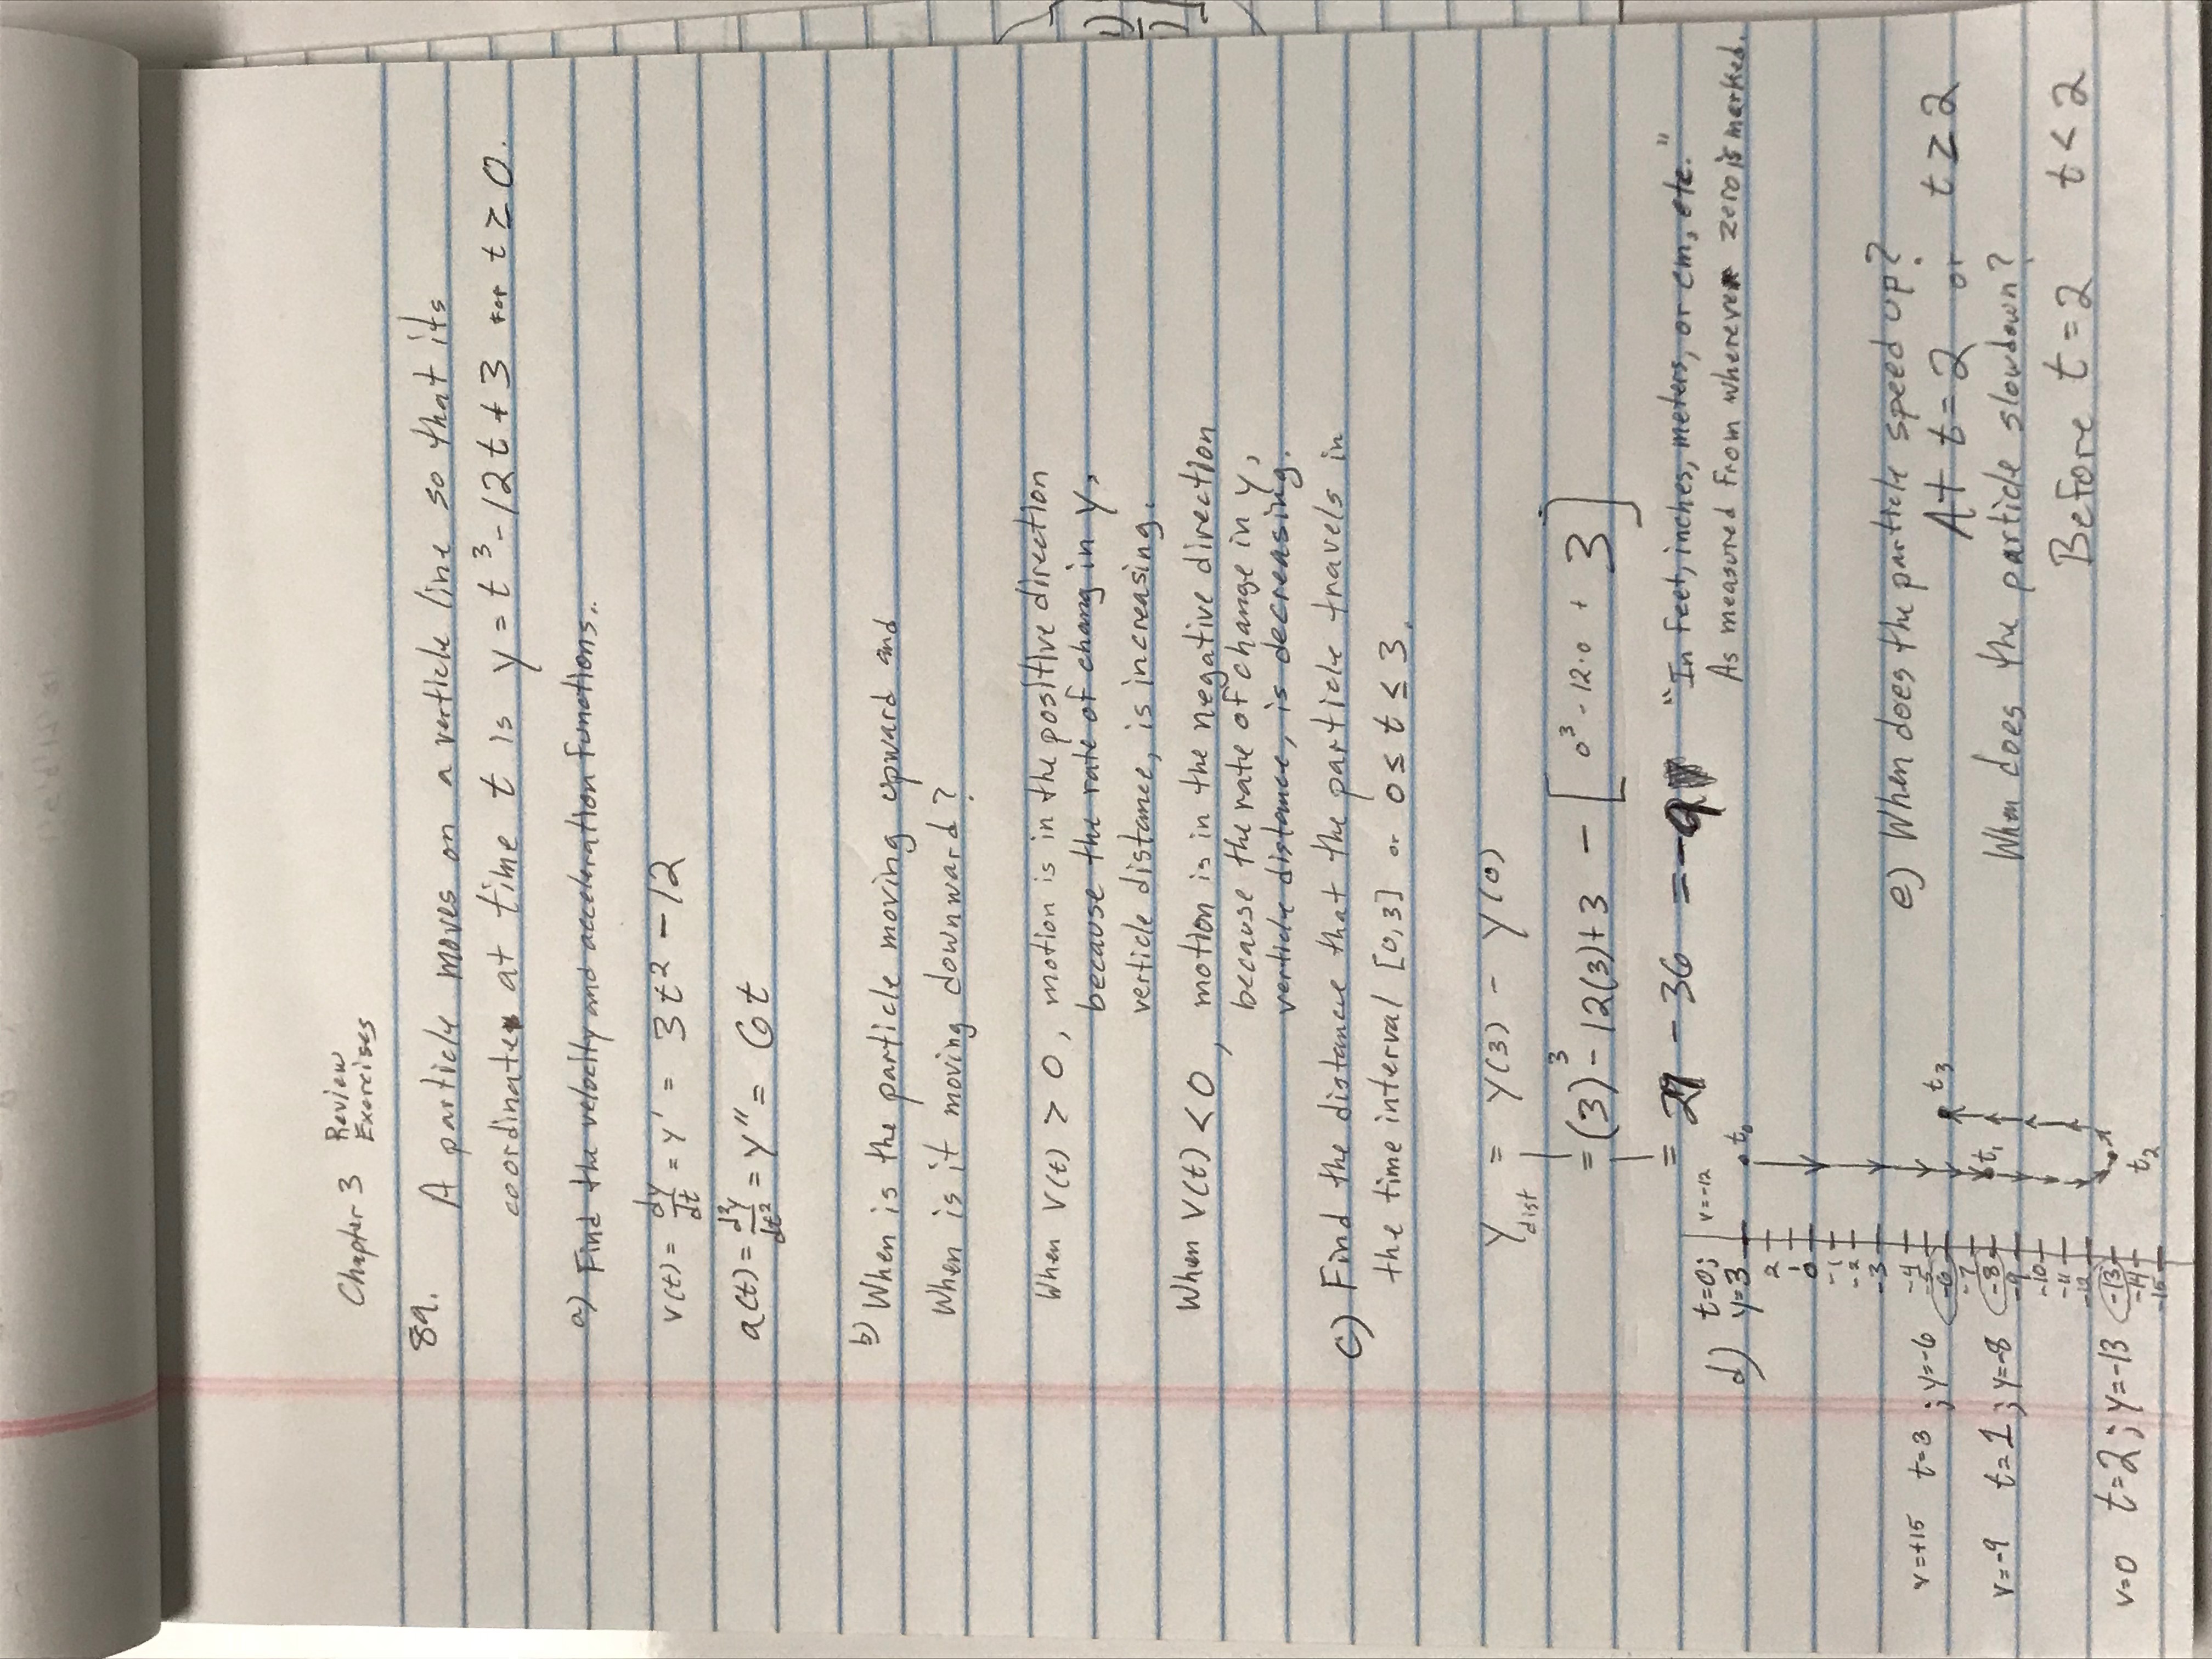 Chapter 3 Review Exercises
89. A particle moves on a verticle line so that its
coordinate at time t is y = t³ - 12t + 3 for t ≥ 0.
a) Find the velocity and acceleration functions..
v(t) = dy/dt = y' = 3t² - 12
a(t) = d²y/dt² = y'' = 6t
b) When is the particle moving upward and
When is it moving downward?
When v(t) > 0, motion is in the positive direction
because the rate of chang in y,
verticle distance, is increasing.
When v(t) < 0, motion is in the negative direction
because the rate of change in y,
verticle distance, is decreasing.
c) Find the distance that the particle travels in
the time interval [0,3] or 0 ≤ t ≤ 3.
y dist = y(3) - y(0)
= (3)³ - 12(3) + 3 - [0³ - 12·0 + 3]
= 27 - 36 = -9 "In feet, inches, meters, or cm, etc."
As measured from wherever zero is marked.
d) t=0; v=-12
y=3 t₀
2
1
0
-1
-2
-3
-4
-5
v=+15 t=3 ; y=-6 -6 t₃
-7
v=-9 t=1 ; y=-8 -8 t₁
-9
-10
-11
-12
v=0 t=2 ; y=-13 -13
-14 t₂
-15
e) When does the particle speed up?
At t=2 or t ≥ 2
When does the particle slowdown?
Before t=2 t < 2